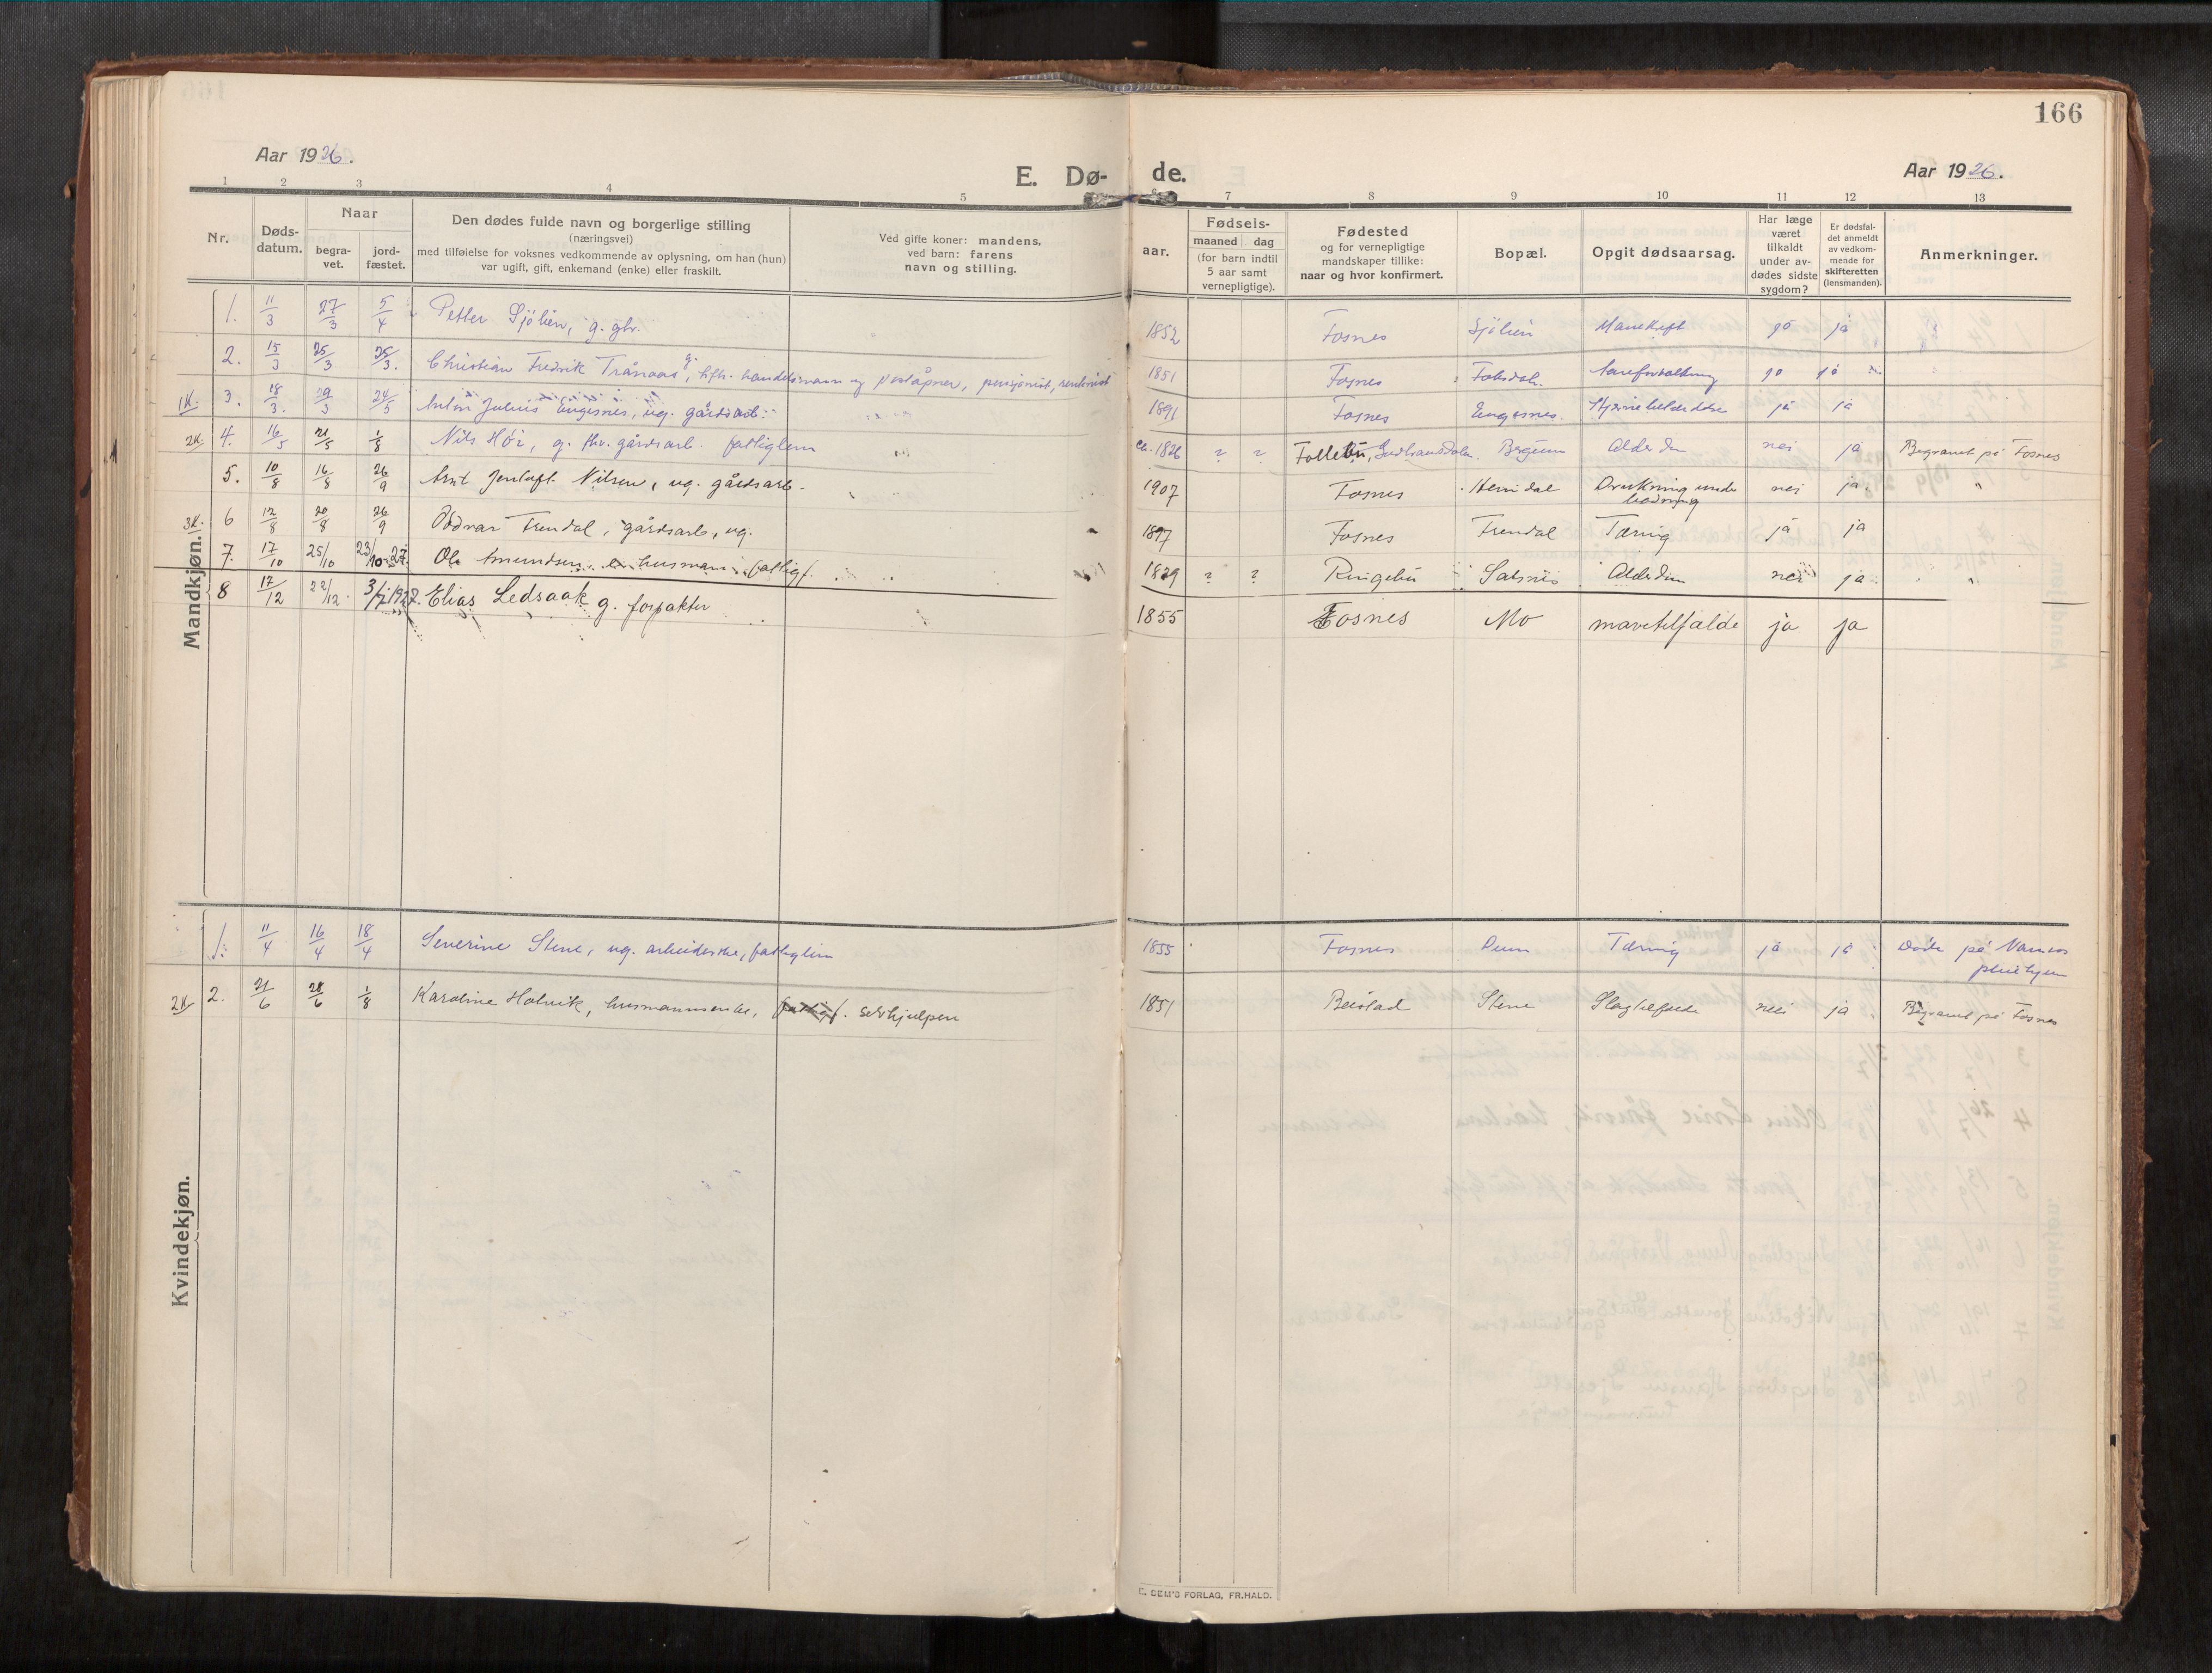 166
Aar 1926.
E. Dø-
de.
Aar 1926.
1 2 3 4 5 6 7 8 9 10 11 12 13
Nr.
Døds-
datum.
Naar
begra-
vet.
jord-
fæstet.
Den dødes fulde navn og borgerlige stilling
(næringsvei)
med tilføielse for voksnes vedkommende av oplysning, om han (hun)
var ugift, gift, enkemand (enke) eller fraskilt.
Ved gifte koner: mandens,
ved barn: farens
navn og stilling.
aar.
Fødsels-
maaned dag
(for barn indtil
5 aar samt
vernepligtige).
Fødested
og for vernepligtige
mandskaper tillike:
naar og hvor konfirmert.
Bopæl.
Opgit dødsaarsag.
Har læge
været
tilkaldt
under av-
dødes sidste
sygdom?
Er dødsfal-
det anmeldt
av vedkom-
mende for
skifteretten
(lensmanden).
Anmerkninger.
Mandkjøn.
1. 11/3 27/3 5/4 Petter Sjölien, g. gbr. 1852 Fosnes Sjölien Mavekræft ja
2. 15/3 25/3 25/3. Christian Fredrik Trånaas, g. handelsmann og poståpner, pensjonist, rentenist 1851 Fosnes Aareforkalkning
1K. 3. 18/3. 29/3 24/5 Anton Julius Engesnes, ug. gårdsarb. 1891 Fosnes Engesnes. ja ja
2K. 4. 16/5 21/5 1/8 Nils Hör, g. fhv. gårdsarb. fattiglem ca. 1826 ? ? Follebu, Gudbransdalen. Bergum Alderdom nei ja Begravet på Fosnes
5. 10/8 16/8 26/9 Arnt Jentoft Nilsen, ug. gårdsarb. 1907 Fosnes Drukning under
badning nei ja. "
3K. 6 12/8 20/8 26/9 Oddvar Frendal, gårdsarb, ug. 1897 Fosnes Frendal Tæring ja ja
7. 17/10 25/10 23/10-27. Ole Amundsen husmann, fattigl. 1829 ? ? Ringebu Salsnes Alderdom nei ja "
8 17/12 22/12. 3/7 1927. Elias Ledsaak g. forpakter 1855 Fosnes Mo mavetilfælde ja ja
Kvindekjøn.
1. 11/4 16/4 18/4 Severine Stene, ug. arbeiderske, fattiglem 1855 Fosnes Duun Tæring ja ja Døde på Namsos
pleiehjem
2K 2. 21/6 28/6 1/8 Karoline Holvik, husmannsenke, fattigl. selvhjulpen 1851 Beistad Stene Slagtilfælde nei ja Begravet på Fosnes
E. SEM'S FORLAG, FR.HALD.